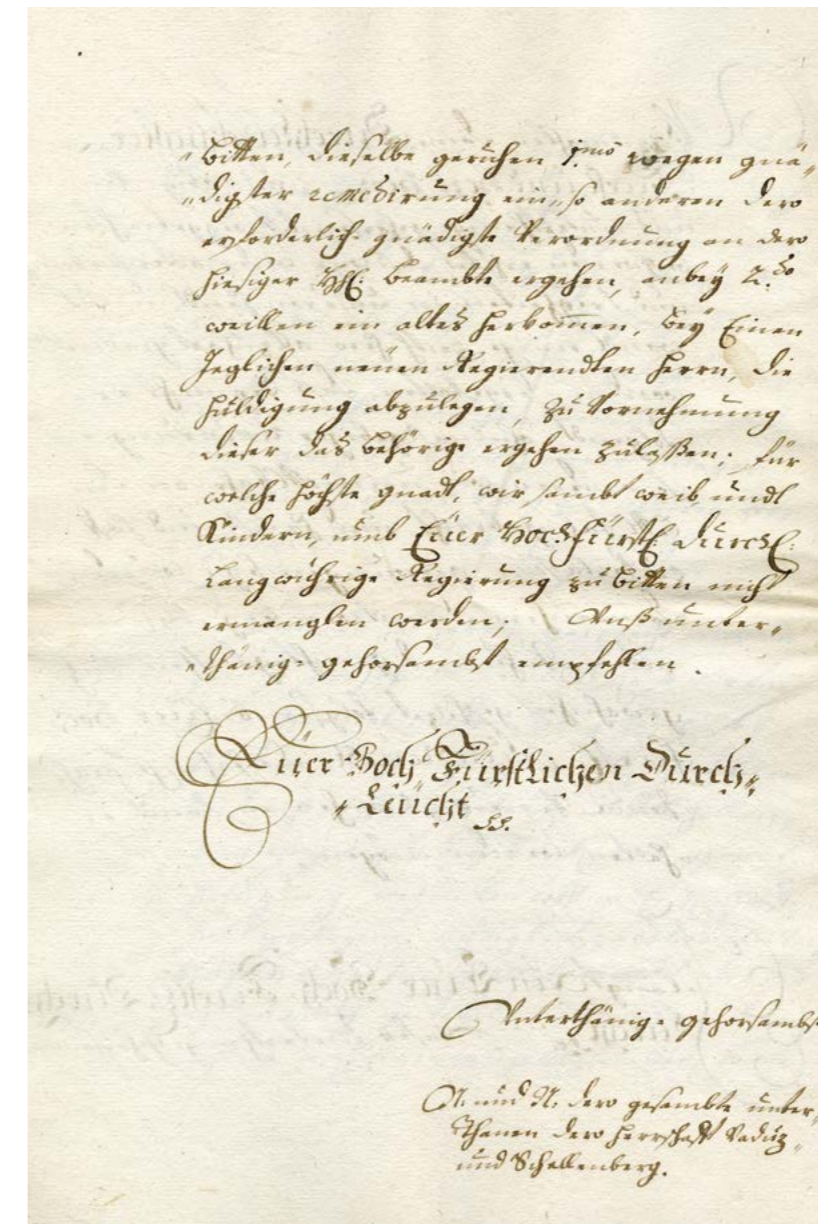 „bitten, dieselbe geruhen 1.mo wegen gnä„
„digster remedirung ein„ so anderen dero
erforderlich- gnädigste Verordnung an dero
hiesiger HH: beambte ergehen, anbey 2.do
weillen ein altes herkom̄en, bey Einen
Jeglichen neüen Regierendten Herrn, die
Huldigung abzulegen, zu Vornehmung
dieser das behörige ergehen zulaßen; für
welche höchste gnadt, wir sambt weib undt
Kindern, umb Eüer Hochfürstl: Durchl:
Langwührige Regierung zu bitten nicht
ermanglen werden; Unß unter„
„thänig- gehorsambst empfehlen.
Eüer Hoch Fürstlichen Durch„
„Leücht
Unterthänig- gehorsambst
N. und N. dero gesambte unter„
Thanen dero Herrschafft Vaduz„
und Schellenberg.